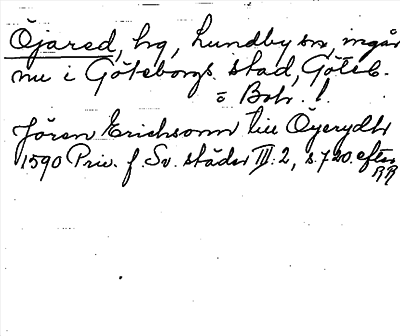 Öjared, hg, Lundby sn, ingår
nu i Göteborgs stad, Göteb.
o Boh. l.
Jören Erichsonn till Öyerydh
1590 Priv. f. Sv. städer III: 2, s. 720. efter
RR